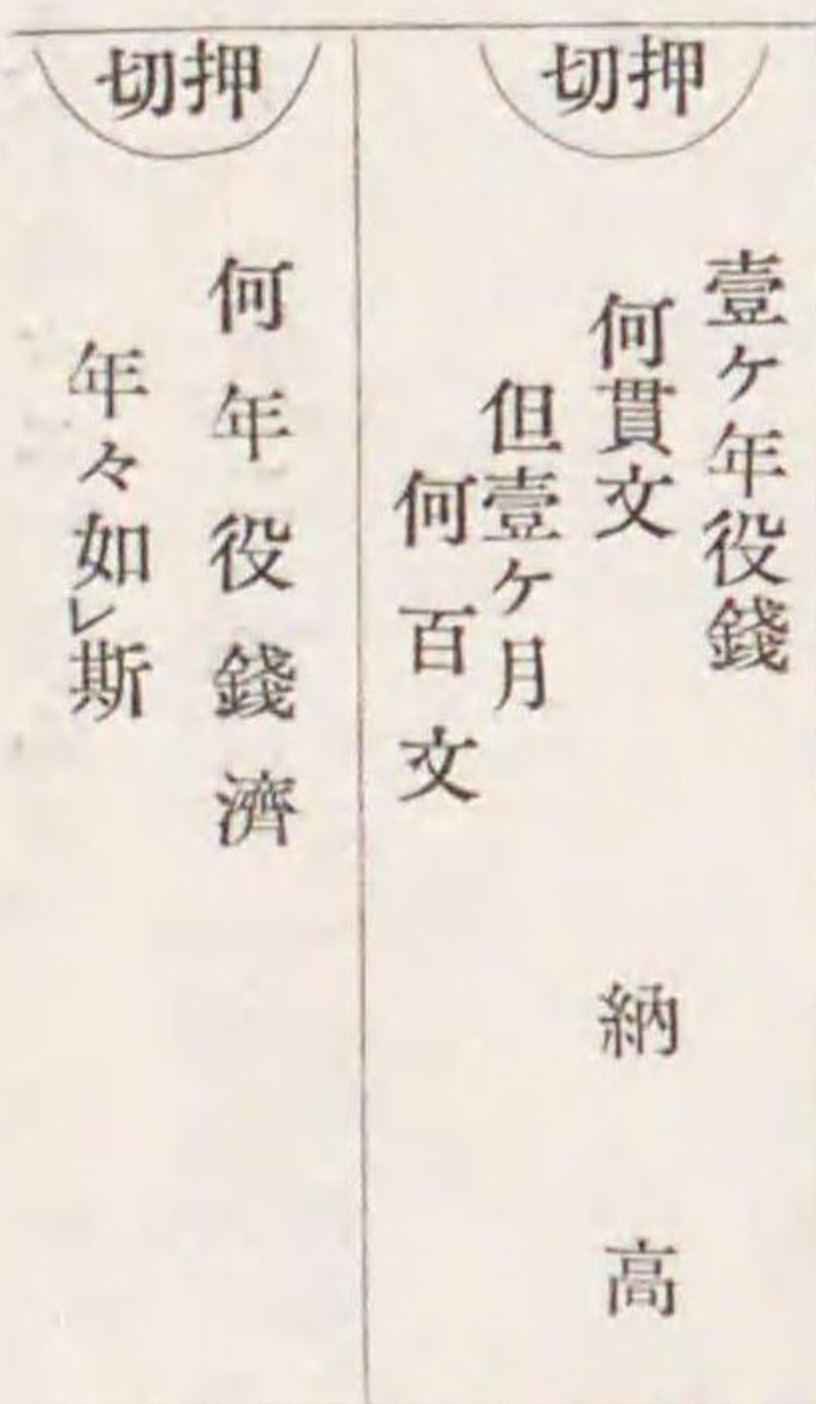 押切
壹ケ年役錢
何貫文 納高
但壹ケ月
何百文
押切
何年役錢濟
年々如レ斯